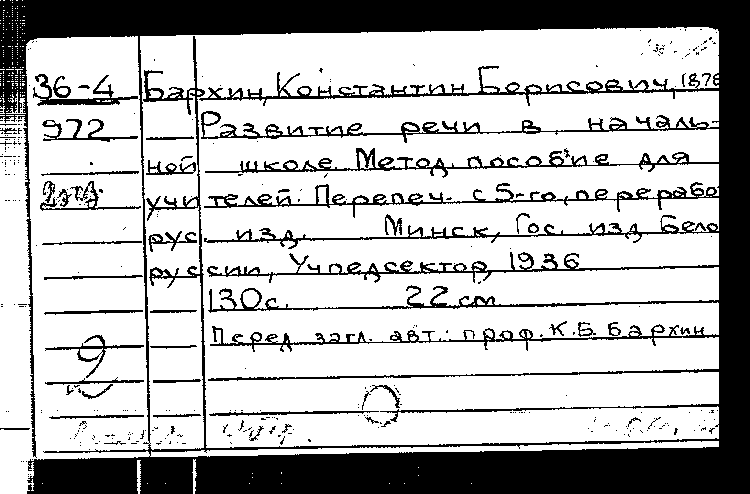 36-4 Бархин, Константин Борисович, 1876
972 Развитие речи в началь-
ной школе. Метод. пособие для
2 экз. учителей. Перепеч. с 5-го, перерабо
рус. изд. Минск, Гос. изд. Бело
руссии, Учпедсектор, 1936
130 с. 22 см
Перед загл. авт.: проф. К. Б. Бархин
2